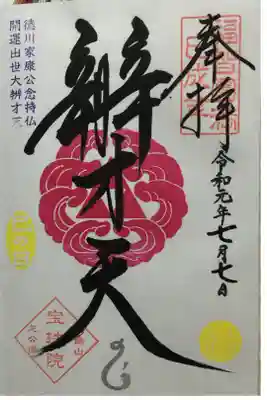 奉拝
令和元年七月七日
辨才天
德川家康公念持仏
開運出世大辨才天
宝珠院
芝公園